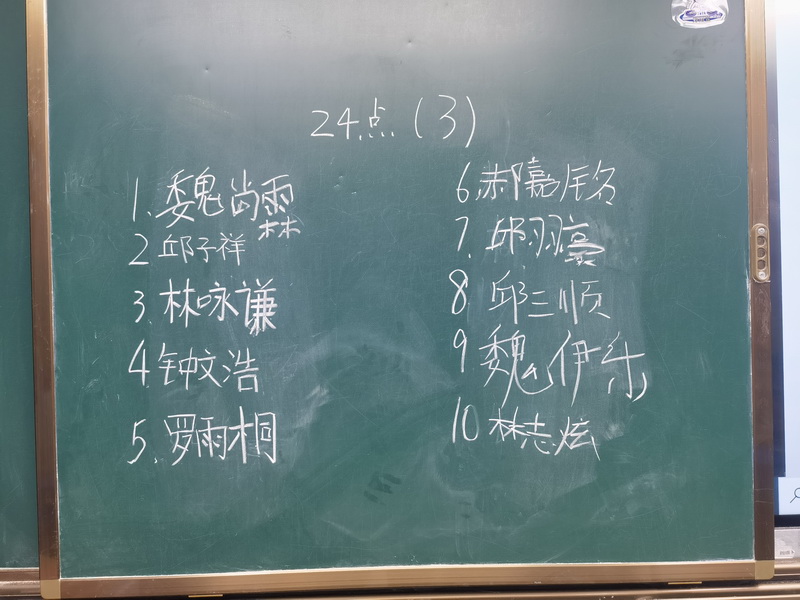 24点(3)
1.魏尚霖
2 邱子祥
3.林咏谦
4.钟文浩
5.罗雨桐
6.郝嘉
7.邱羽豪
8 邱三顺
9 魏伊乐
10 林志炫